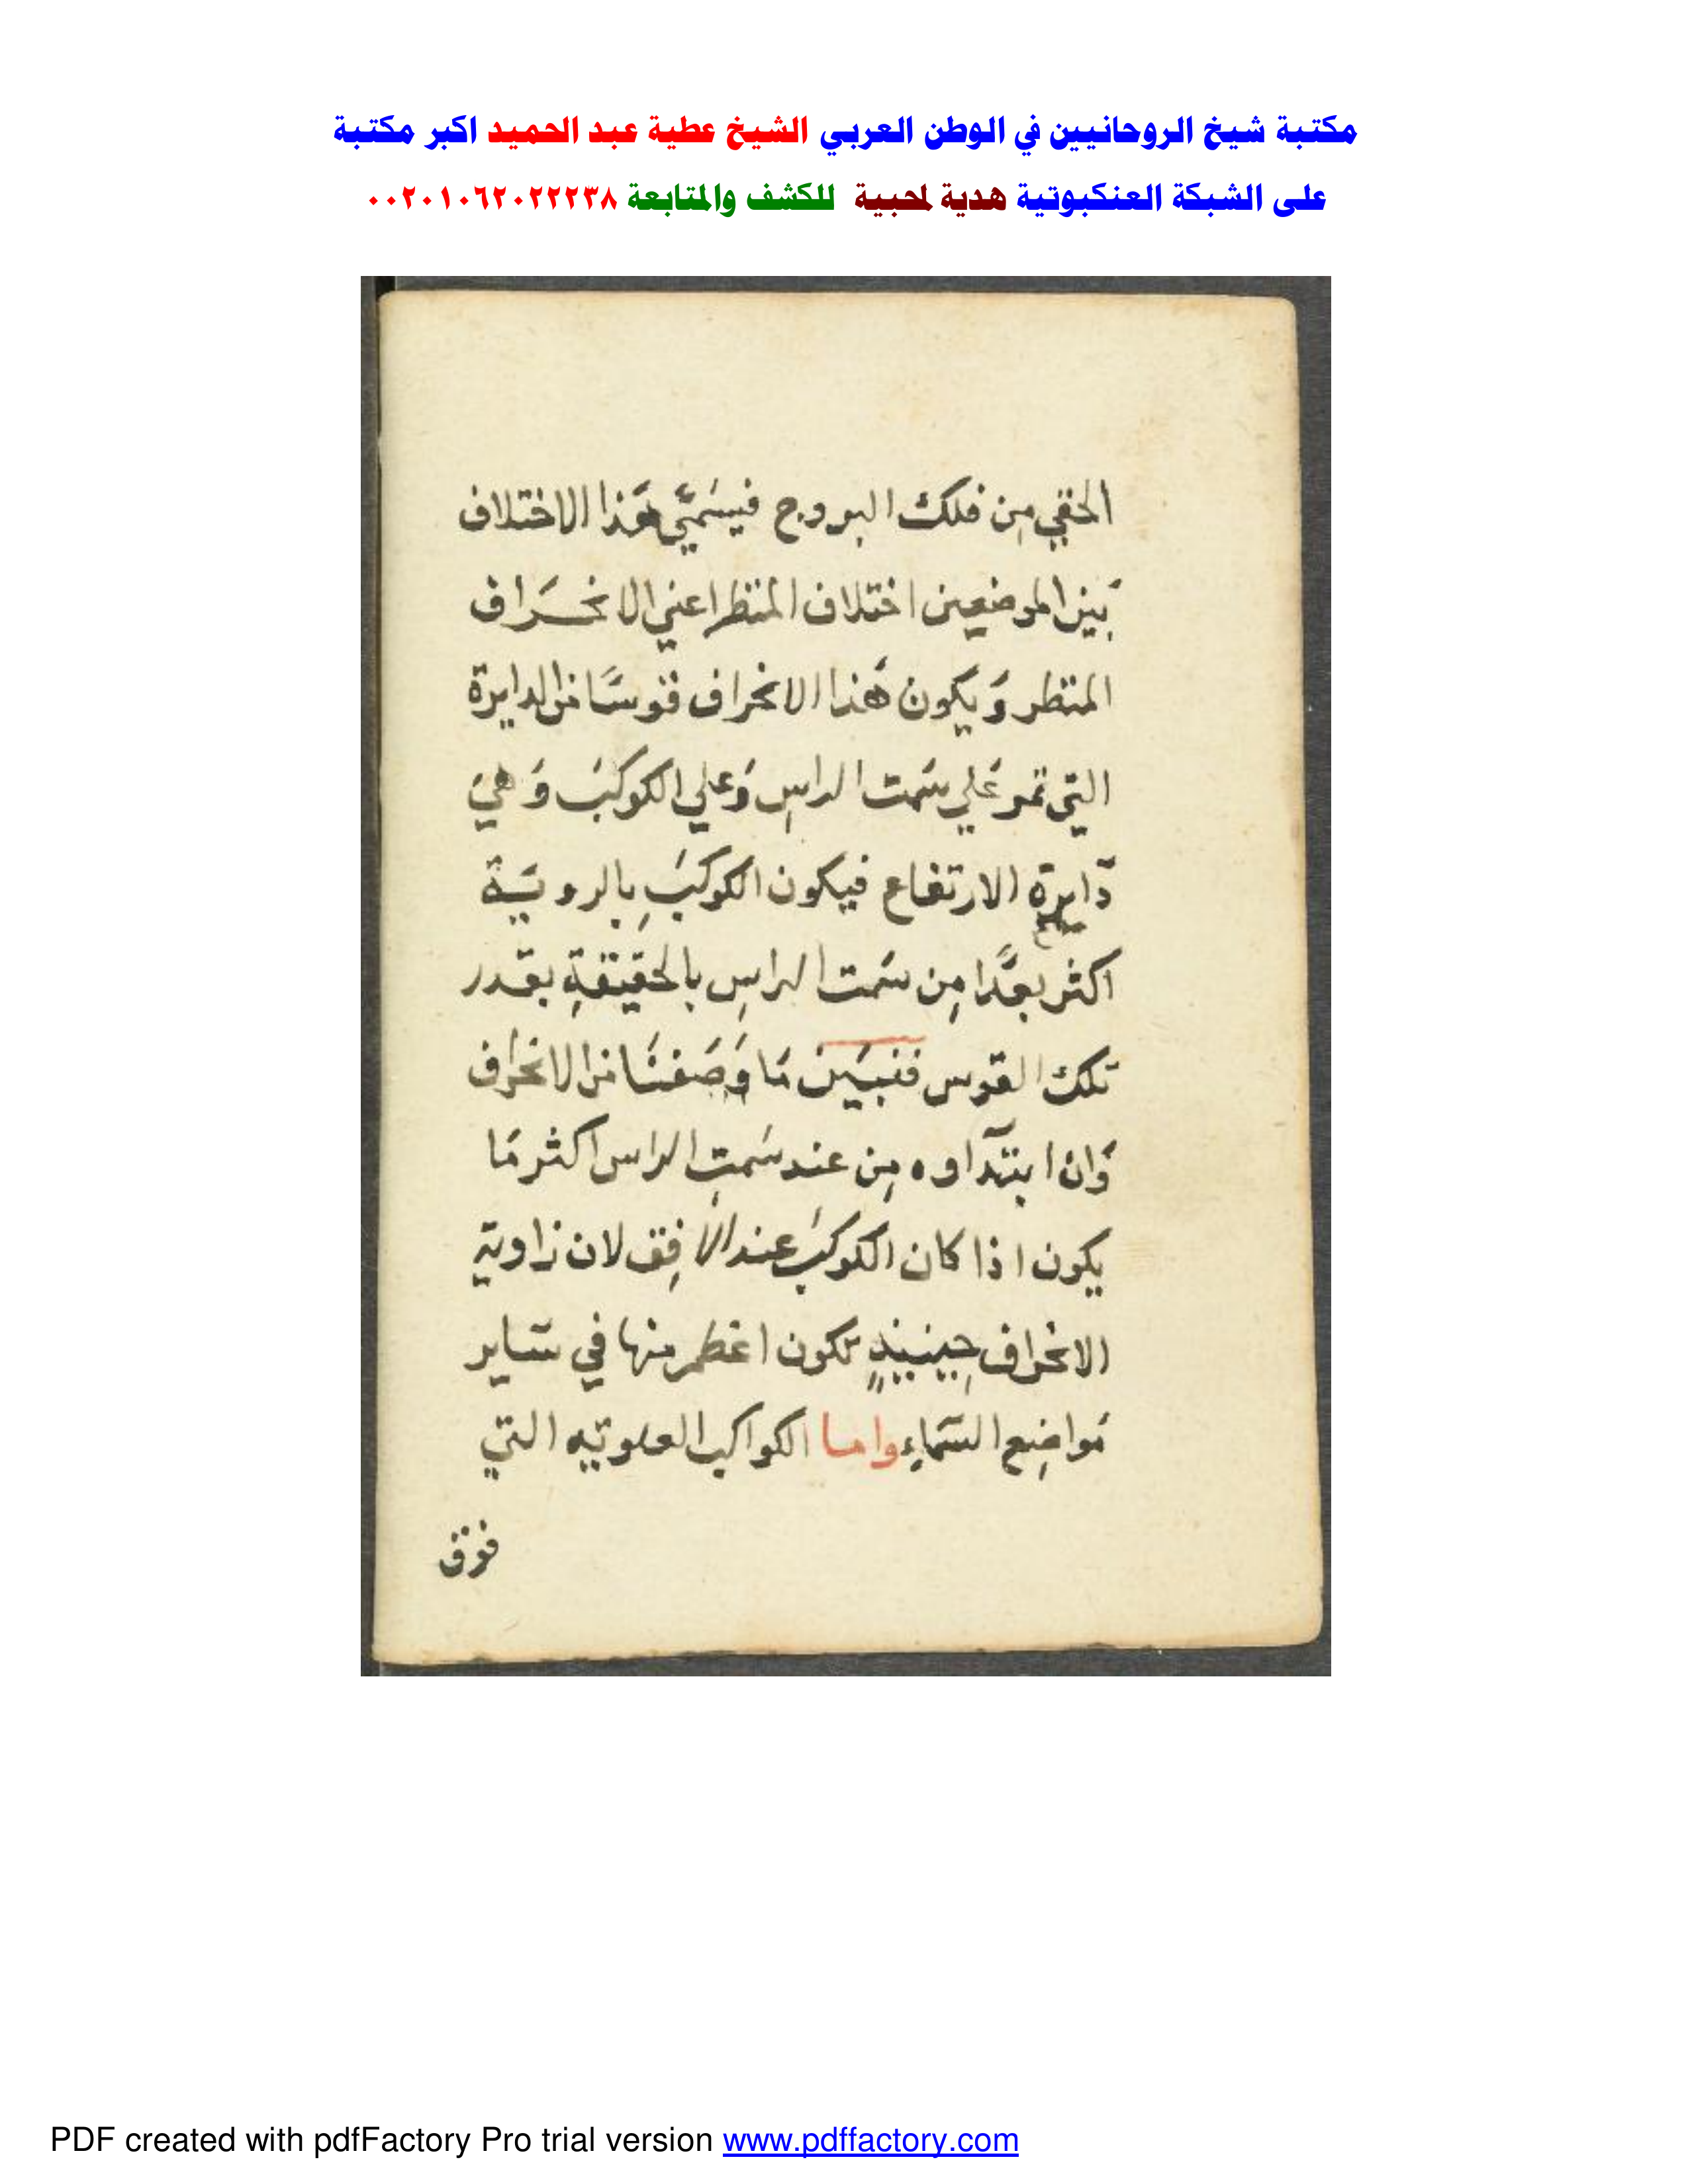 مكتبة شيخ الروحانيين في الوطن العربي الشيخ عطية عبد الحميد اكبر مكتبة
على الشبكة العنكبوتية هدية لمحبية للكشف والمتابعة ٠٠٢٠١٠٦٢٠٢٢٢٣٨
الحقي مِن فلك البروج فيسَمّيَ هَذا الاختلاف
بَين الموضعين اختلاف المنظر اعني الانحَراف
المنظر وَيكون هَذا الانحراف قوسًا من الدايرة
التي تمر عَلي سَمت الراسِ وَعلي الكوكبَ وَهيَ
دَايرة الارتفاع فيكون الكوكبَ بِالرويَة
اكثر بعدًا مِن سَمت الراسِ بالحقيقةِ بقدر
تلك القوس فنبيَن مَا وَصَفنَا من الانحراف
وَان ابتدآوه مِن عند سَمتِ الراس اكثر مَا
يكون اذا كان الكوكبَ عند الافِق لان زاوية
الانحراف حِينيذٍ تكون اعظم منها في سَاير
مَواضِع السَماءِ واما الكواكب العلوتيه التي
فوق
PDF created with pdfFactory Pro trial version www.pdffactory.com